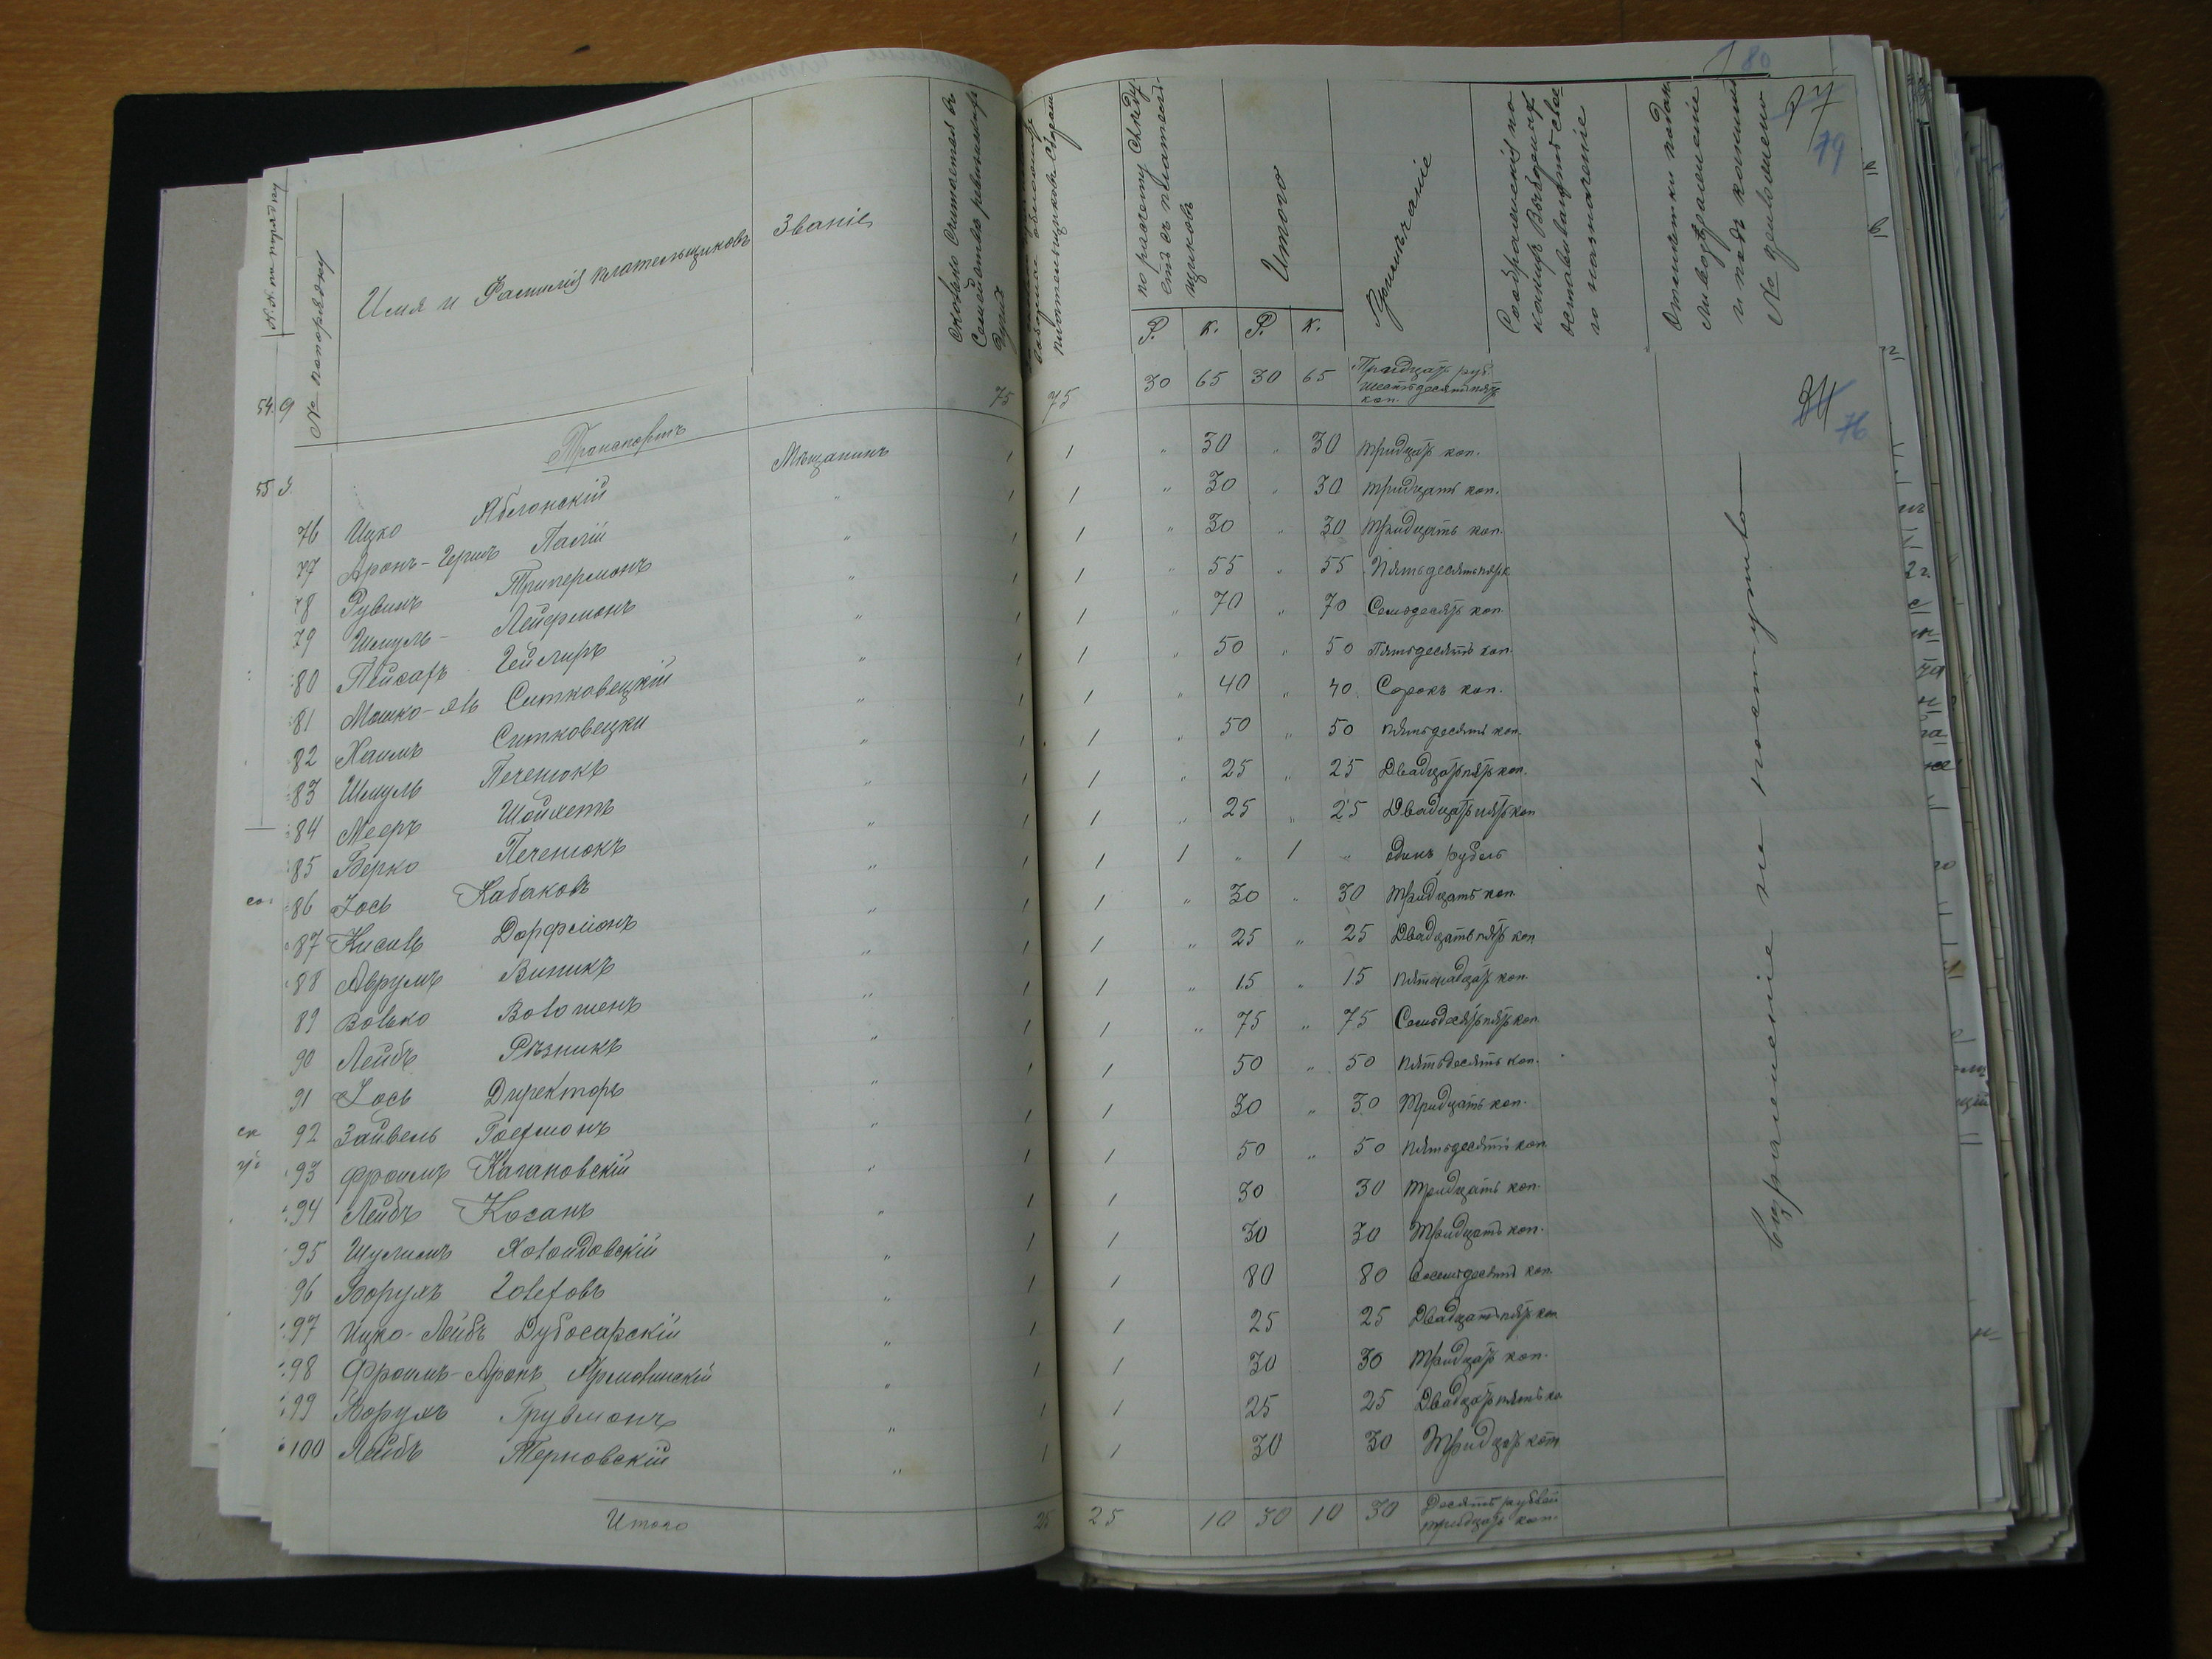 № попорядку
Имя и Фамилія плательщиковъ
Званіе
Сколько Считается въ Семействѣ ревизскихъ душъ
по расчету Слѣдуетъ съ плательщиковъ
Итого
Примѣчаніе
Р. К. Р. К.
Транспортъ 75 75 30 65 30 65 Тридцать руб. шестьдесятъ пять коп.
76 Ицко Яблонскій Мѣщанинъ 1 1 " 30 " 30 тридцать коп.
77 Аронъ-Гершъ Палій " 1 1 " 30 " 30 тридцать коп.
78 Рувинъ Триперманъ " 1 1 " 30 " 30 тридцать коп.
79 Шмуль Лейфманъ " 1 1 " 55 " 55 Пятьдесятъ пять к.
80 Пейсахъ " 1 1 " 70 " 70 Семьдесятъ коп.
81 Мошко- Ситковецкій " 1 1 " 50 " 50 Пятьдесятъ коп.
82 Хаимъ Ситковецки " 1 1 " 40 " 40 Сорокъ коп.
83 Шмуль Печенюкъ " 1 1 " 50 " 50 пятьдесятъ коп.
84 Мееръ Шойхетъ " 1 1 " 25 " 25 Двадцать пять коп.
85 Берко Печенюкъ " 1 1 " 25 " 25 Двадцать пять коп
86 Іось Кабаковъ " 1 1 1 " 1 " одинъ рубль
87 Кисиль Дорфманъ " 1 1 " 30 " 30 тридцать коп.
88 Аврумъ Виникъ " 1 1 " 25 " 25 Двадцать пять коп
89 Волько Волошенъ " 1 1 " 15 " 15 пятнадцать коп.
90 Лейбъ Рѣзникъ " 1 1 " 75 " 75 Семьдесятъ пять коп
91 Іось Директоръ " 1 1 50 " 50 пятьдесятъ коп.
92 Зайвель Гофманъ " 1 1 30 " 30 Тридцать коп.
93 Фроимъ Качановскій " 1 1 50 " 50 пятьдесятъ коп
94 Лейбъ Косанъ " 1 1 30 30 тридцать коп.
95 Шулимъ Холоидовскій " 1 1 30 30 Тридцать коп.
96 Борухъ " 1 1 80 80 Восемьдесятъ коп.
97 Ицко-Лейбъ Дубосарскій " 1 1 25 25 Двадцать пять коп
98 Фроимъ-Аронъ " 1 1 30 30 тридцать коп.
99 Борухъ Грувманъ " 1 1 25 25 Двадцать пять ко
100 Лейбъ Терновскій " 1 1 30 30 Тридцать коп
Итого 25 25 10 30 10 30 Десять рублей тридцать коп.
Возраженіе не поступило
80
79
76